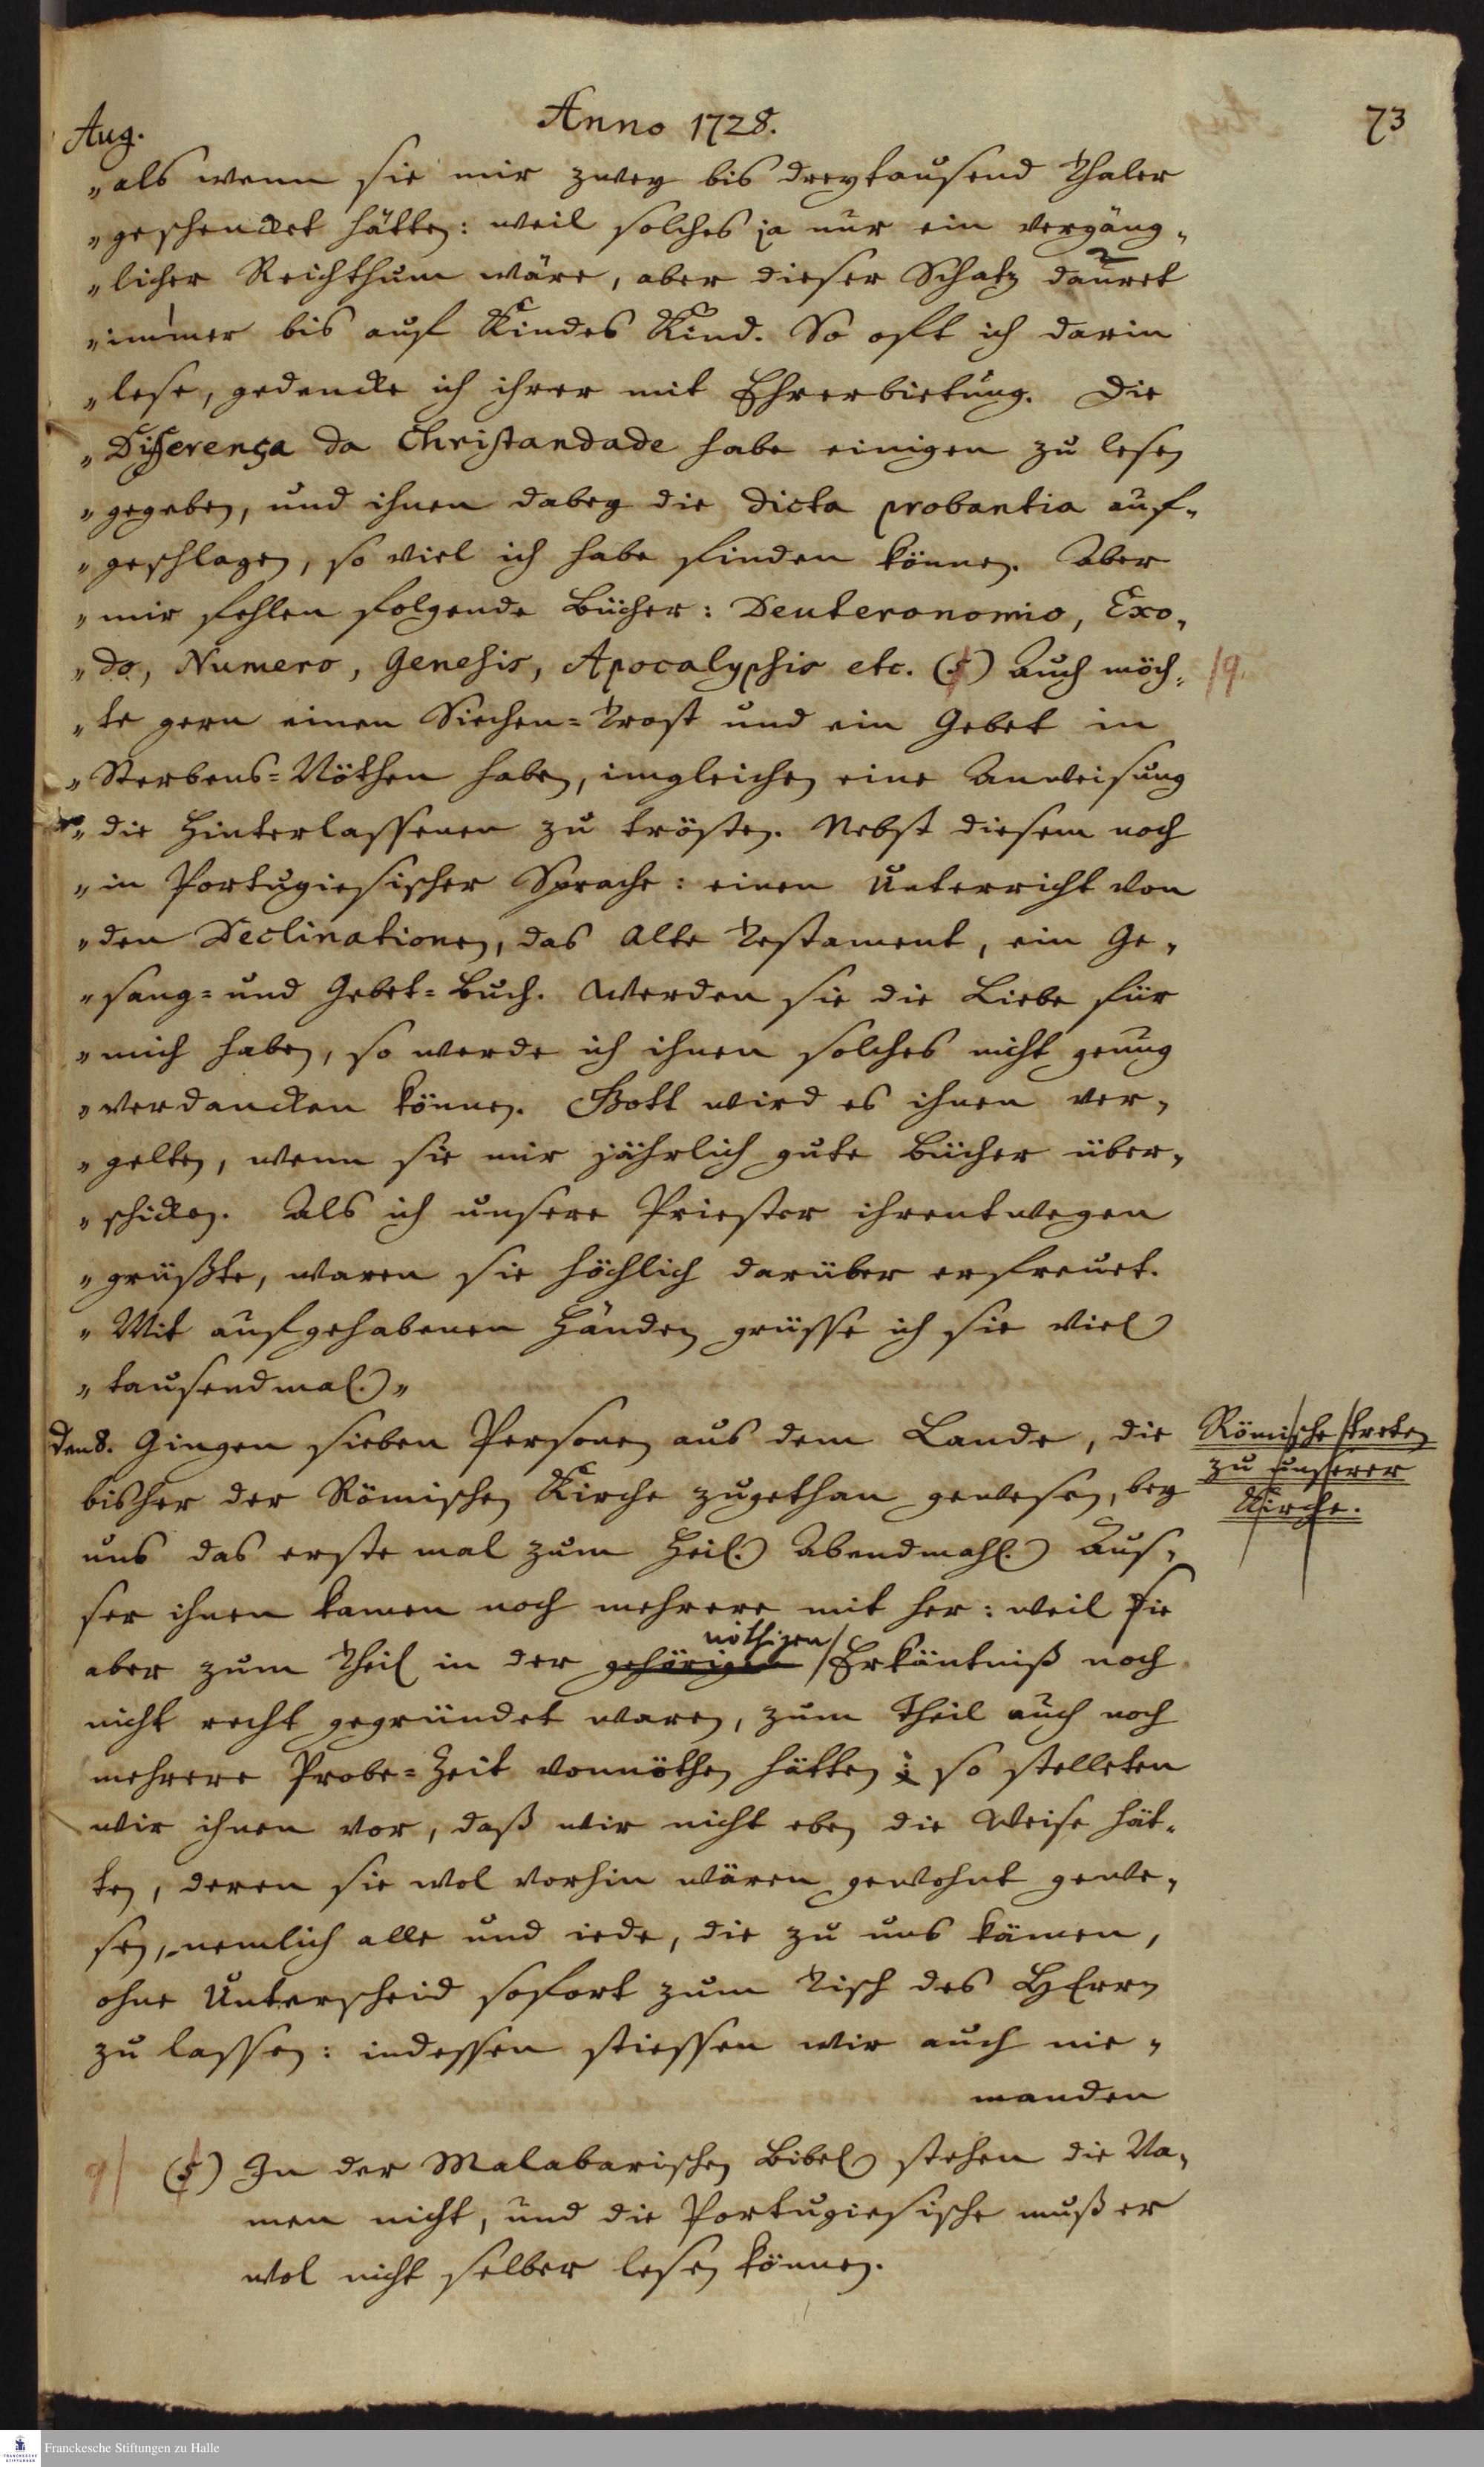 Aug.
Anno 1728.
73
„als wenn sie mir zwey bis dreytausend Thaler
„geschencket hätten: weil solches ja nur ein vergäng-
„licher Reichthum wäre, aber dieser Schatz dauret
„immer bis auf Kindes Kind. So oft ich darin
„lese, gedencke ich ihrer mit Ehrerbietung. Die
„Differença da Christandade habe einigen zu lesen
„gegeben, und ihnen dabey die dicta probantia auf-
„geschlagen, so viel ich habe finden können. Aber
„mir fehlen folgende Bücher: Deuteronomio, Exo-
„do, Numero, Genesis, Apocalypsis etc. () Auch möch-
„te gern einen Siechen-Trost und ein Gebet in
„Sterbens-Nöthen haben, imgleichen eine Anweisung
„die Hinterlassenen zu trösten. Nebst diesem noch
„in Portugiesischer Sprache: einen Unterricht von
„den Declinationen, das Alte Testament, ein Ge-
„sang- und Gebet-Buch. Werden sie die Liebe für
„mich haben, so werde ich ihnen solches nicht genug
„verdancken können. Gott wird es ihnen ver-
„gelten, wenn sie mir jährlich gute Bücher über-
„schicken. Als ich unsere Priester ihrentwegen
„grüßte, waren sie höchlich darüber erfreuet.
„Mit aufgehabenen Händen grüsse ich sie viel
„tausendmal.„
den 8. Gingen sieben Personen aus dem Lande, die
bisher der Römischen Kirche zugethan gewesen, bey
uns das erste mal zum Heil. Abendmahl. Aus-
ser ihnen kamen noch mehrere mit her: weil sie
nöthigen
aber zum Theil in der gehörigen Erkäntniß noch
nicht recht gegründet waren, zum Theil auch noch
mehrere Probe-Zeit vonnöthen hätten; so stelleten
wir ihnen vor, daß wir nicht eben die Weise hät-
ten, deren sie wol vorhin wären gewohnt gewe-
sen, nemlich alle und iede, die zu uns kämen,
ohne Unterscheid sofort zum Tisch des HErrn
zu lassen: indessen stiessen wir auch nie-
manden
Römische treten
zu unserer
Kirche.
() In der Malabarischen Bibel stehen die Na-
men nicht, und die Portugiesische muß er
wol nicht selber lesen können.
Franckesche Stiftungen zu Halle